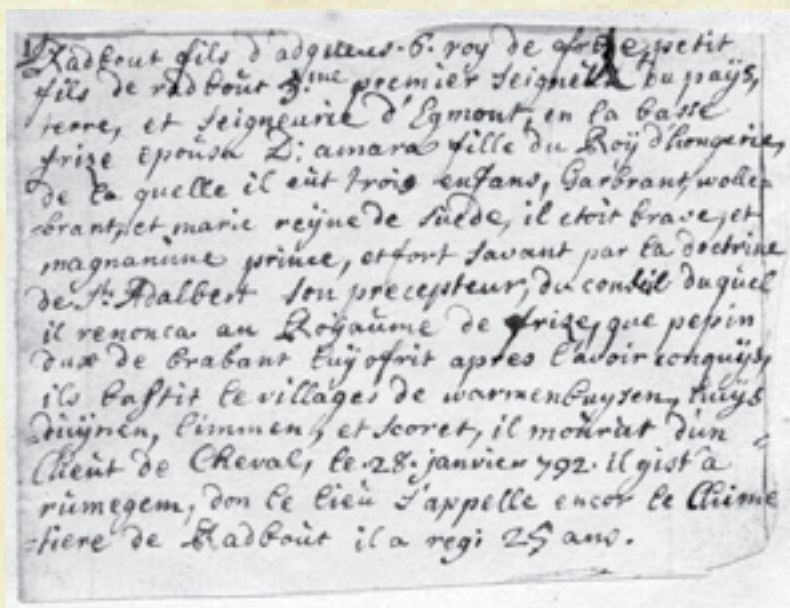 1 Radbout fils d'adgillus. 6. roy de frize petit
fils de radboût 3.me premier seigneur du paÿs,
terre, et seigneurie d'Egmont, en la basse
frize epoûsa D: amara fille du Roÿ d'hongerie,
de la quelle il eût trois enfans, Garbrant, wolle=
=brant, et marie reÿne de suede, il etoit brave, et
magnanime prince, et fort savant par la doctrine
de St: Adalbert son precepteur, du conseil duquel
il renonca au Roÿaume de frize, que pepin
dux de brabant luÿ ofrit apres l'avoir conquÿs,
ils bastit le villages de warmenhuysen, huÿs
duÿnen, limmen, et scorel, il moûrut d'un
Cheût de Cheval, le 28. janvier 792. il gist a
rumegem, don le lieu s'appelle encor le Chime
=tiere de Radboût il a regi 25 ans.